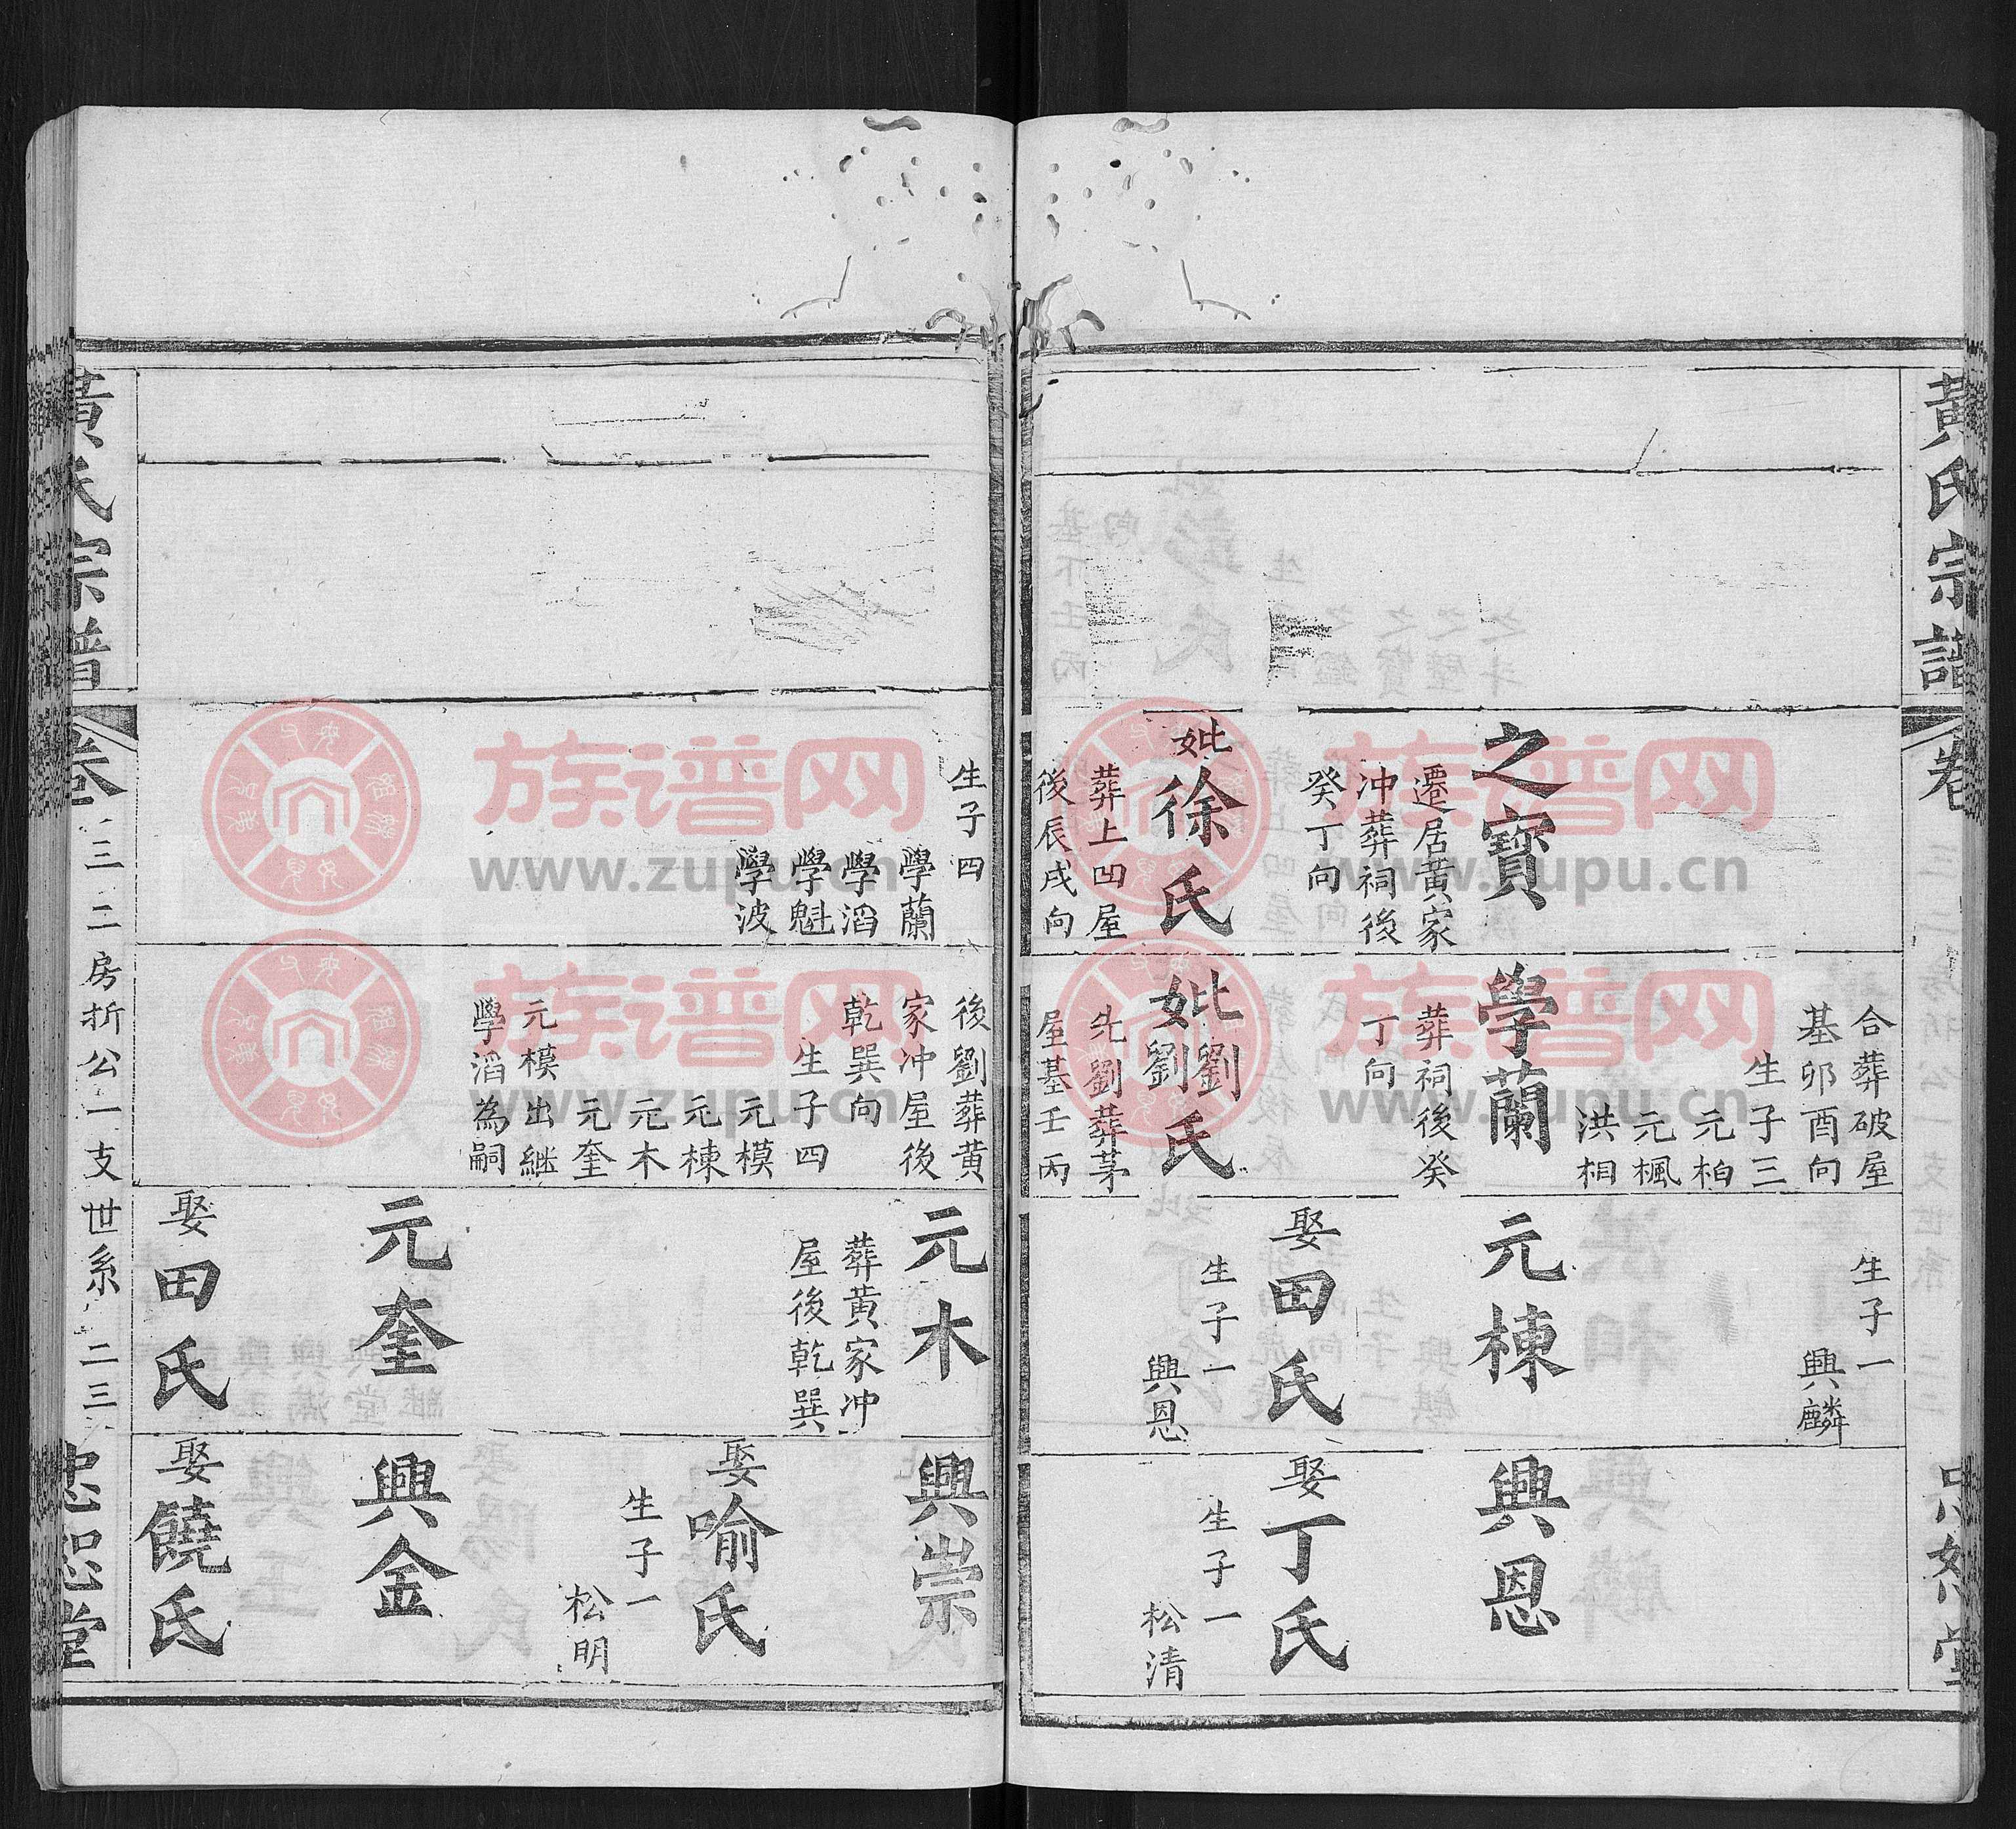 黃氏宗譜
卷
忠恕堂
之寶
遷居黃家
冲葬祠後
癸丁向
妣徐氏
葬上凹屋
後辰戌向
合葬破屋
基卯酉向
生子三
元柏
元楓
洪相
學蘭
葬祠後癸
丁向
妣劉劉氏
先劉葬茅
屋基壬丙
生子一
興麟
元棟
娶田氏
生子一
興恩
興恩
娶丁氏
生子一
松清
生子四
學蘭
學滔
學魁
學波
後劉葬黃
家冲屋後
乾巽向
生子四
元模
元棟
元木
元奎
元模出継
學滔為嗣
元木
葬黃家冲
屋後乾巽
元奎
娶田氏
興崇
娶喻氏
生子一
松明
興金
娶饒氏
黃氏宗譜
卷三二房折公一支世系 二三
忠恕堂
族谱网
www.zupu.cn
族谱网
www.zupu.cn
族谱网
www.zupu.cn
族谱网
www.zupu.cn